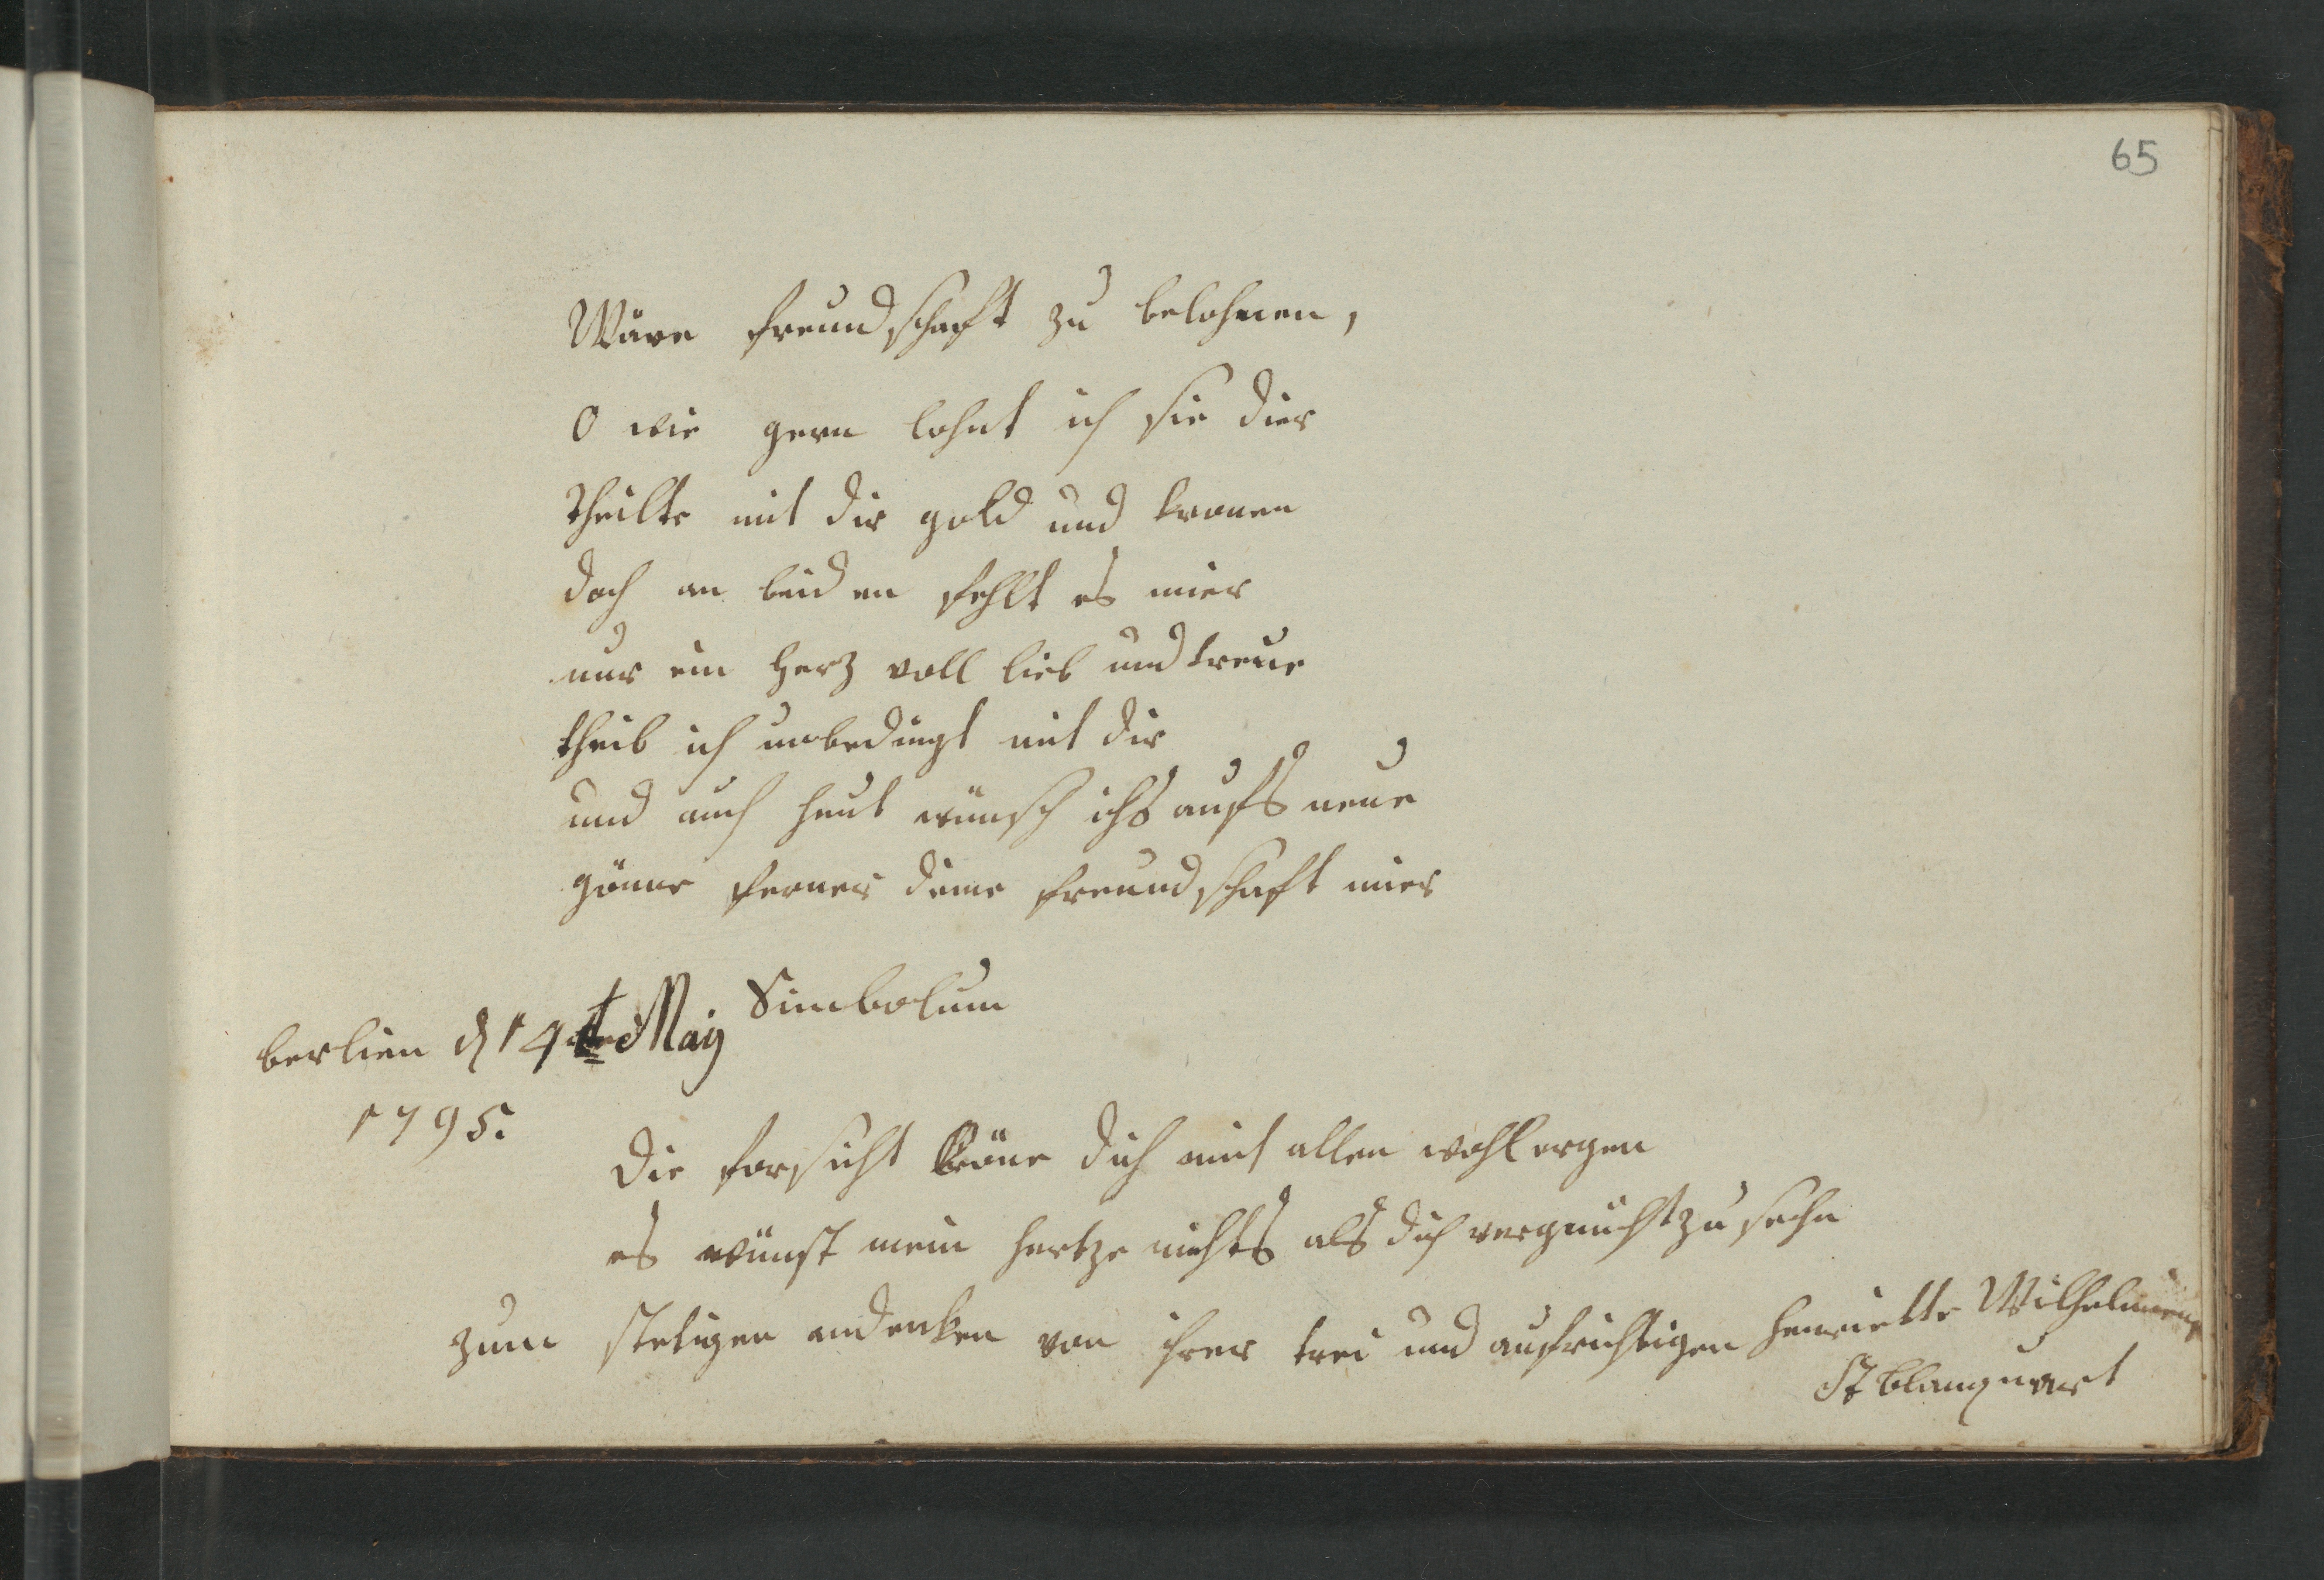 65
Wäre freundschaft zu belohnen,
O wie gern lohnt ich sie dier
theilte mit dir gold und kronen
doch an beiden fehlt es mier
nur ein herz voll lieb und treue
theil ich unbedingt mit dir
und auch heut wünsch ichs aufs neue
gönne ferner deine freundschaft mier
Simbolum
berlien d 14 May
1795.
Die forsicht kröne dich mit allen wohlergen
es wünst mein hertze nichts als dich vergnücht zu sehn
zum stetigen andenken von ihrer trei und aufrichtigen henriette Wilhelmine
blanquart